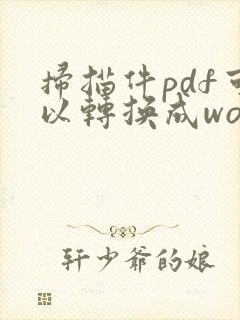 掃描件pdf可
以轉換成wo
轩少爺的娘